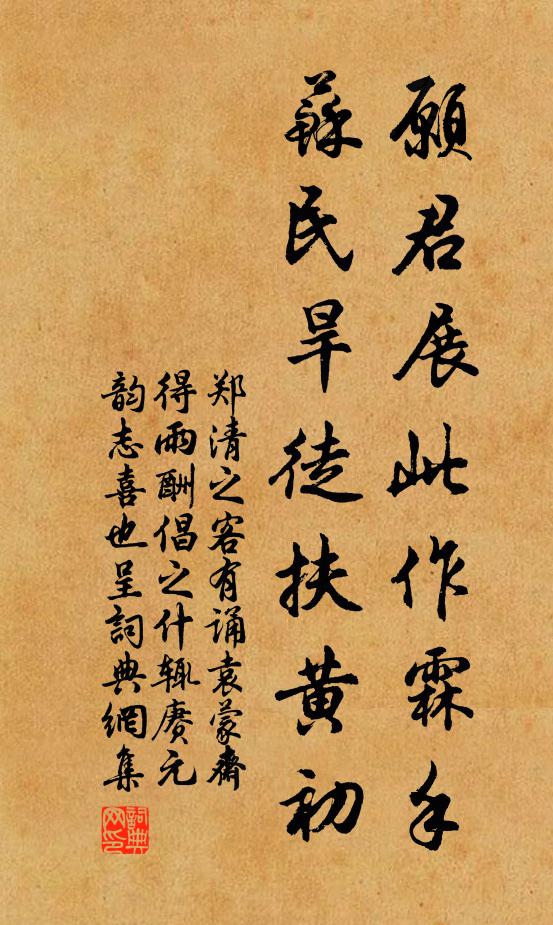 願君展此作霖手
蘇民旱徒扶黄初
郑清之客有诵袁蒙齋
得雨酬倡之什辄赓元
韵志喜也呈詞典網集
詞典
网印